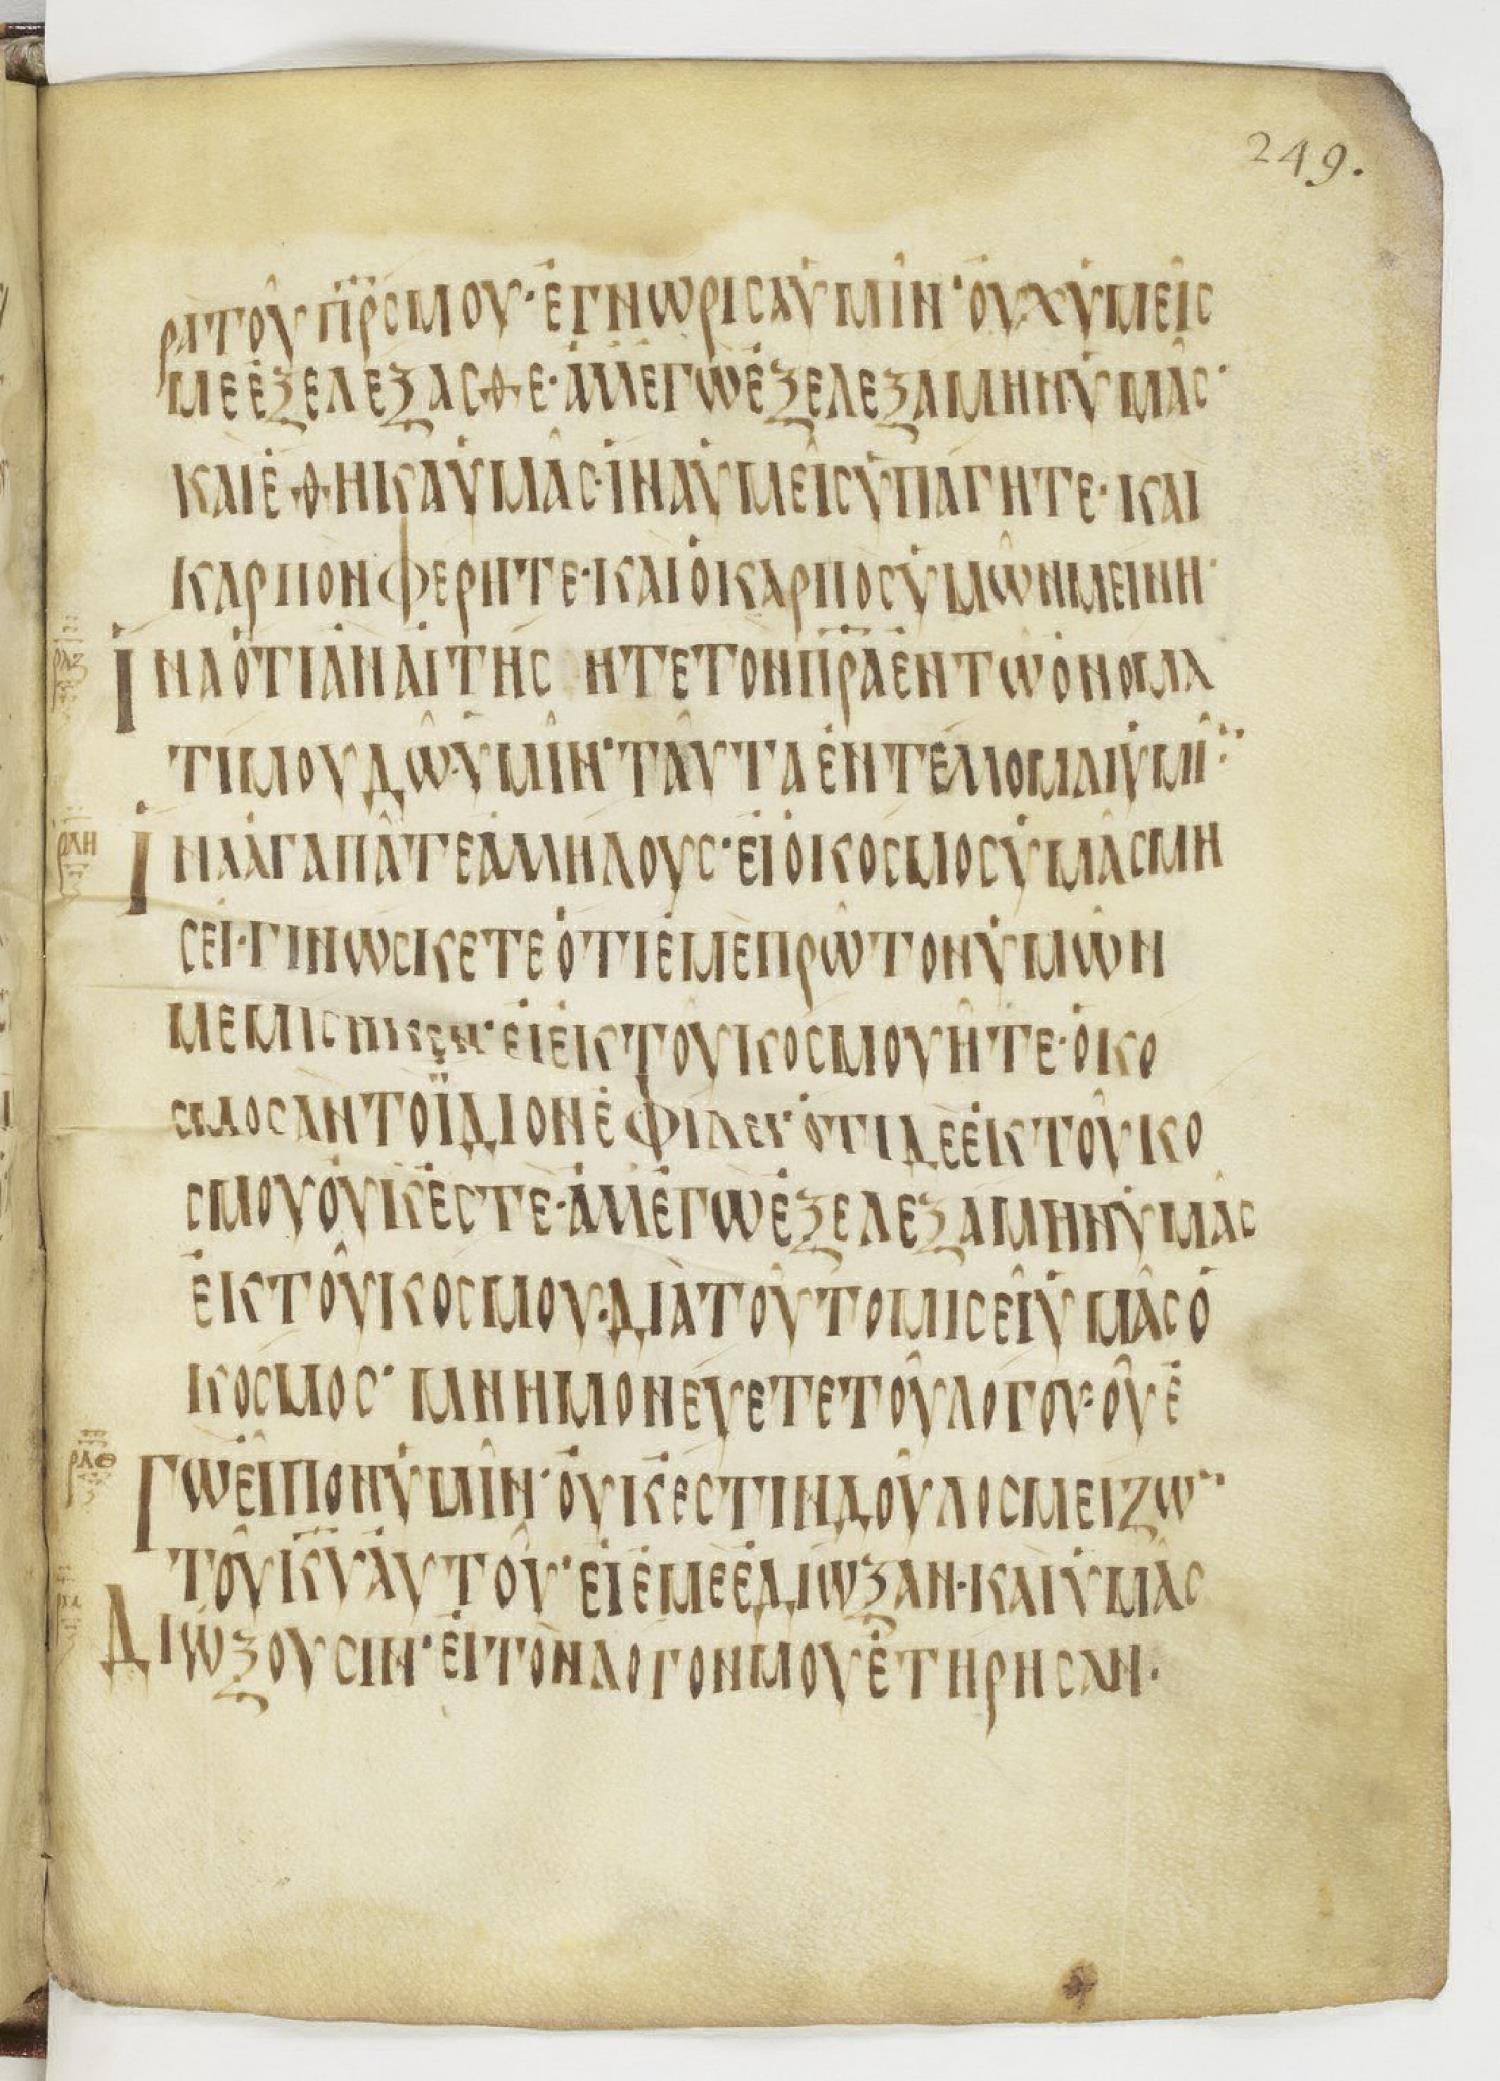 249.
ρατοῦ πρσ μου· ἐγνωρισα ὑμῖν· οὐχ ὑμεῖσ
με ἐξελεξασθε· ἀλλ ἐγὼ ἐξελεξαμην ὑμᾶσ·
και ἐθηκα ὑμᾶσ· ἱνα ὑμεῖσ ὑπάγητε· και
καρπον φερητε· και ὁ καρποσ ὑμῶν μεινη·
ρλζ
Ἱνα ὁτι ἀν αἰτησ ητε τον πρα ἐν τῶ ὀνομα
τι μου δῶ ὑμῖν· ταῦτα ἐντελλομαι ὑμῖ··
ρλη
Ἱνα ἀγαπᾶτε ἀλληλουσ· εἰ ὁ κοσμοσ ὑμᾶσ μη
σεῖ· γινωσκετε ὁτι ἐμε πρῶτον ὑμῶν
μεμισηκεν· εἰ ἐκ τοῦ κοσμου ἦτε· ὁ κο
σμοσ αν το ϊδιον ἐφιλει· ὁτι δε ἐκ τοῦ κο
σμου οὐκ ἐστε· ἀλλ ἐγω ἐξελεξαμην ὑμᾶσ
ἐκ τοῦ κοσμου· διὰ τοῦτο μισεῖ ὑμᾶσ ὁ
κοσμοσ· μνημονευετε τοῦ λογου· οὗ ἐ
ρλθ
Γω εἶπον ὑμῖν· οὐκ ἐστιν δοῦλοσ μειζω··
τοῦ κυ αὐτοῦ· εἰ ἐμε ἐδιωξαν· και ὑμᾶσ
Διώξουσιν· εἰ τὸν λογον μου ἐτηρησαν·